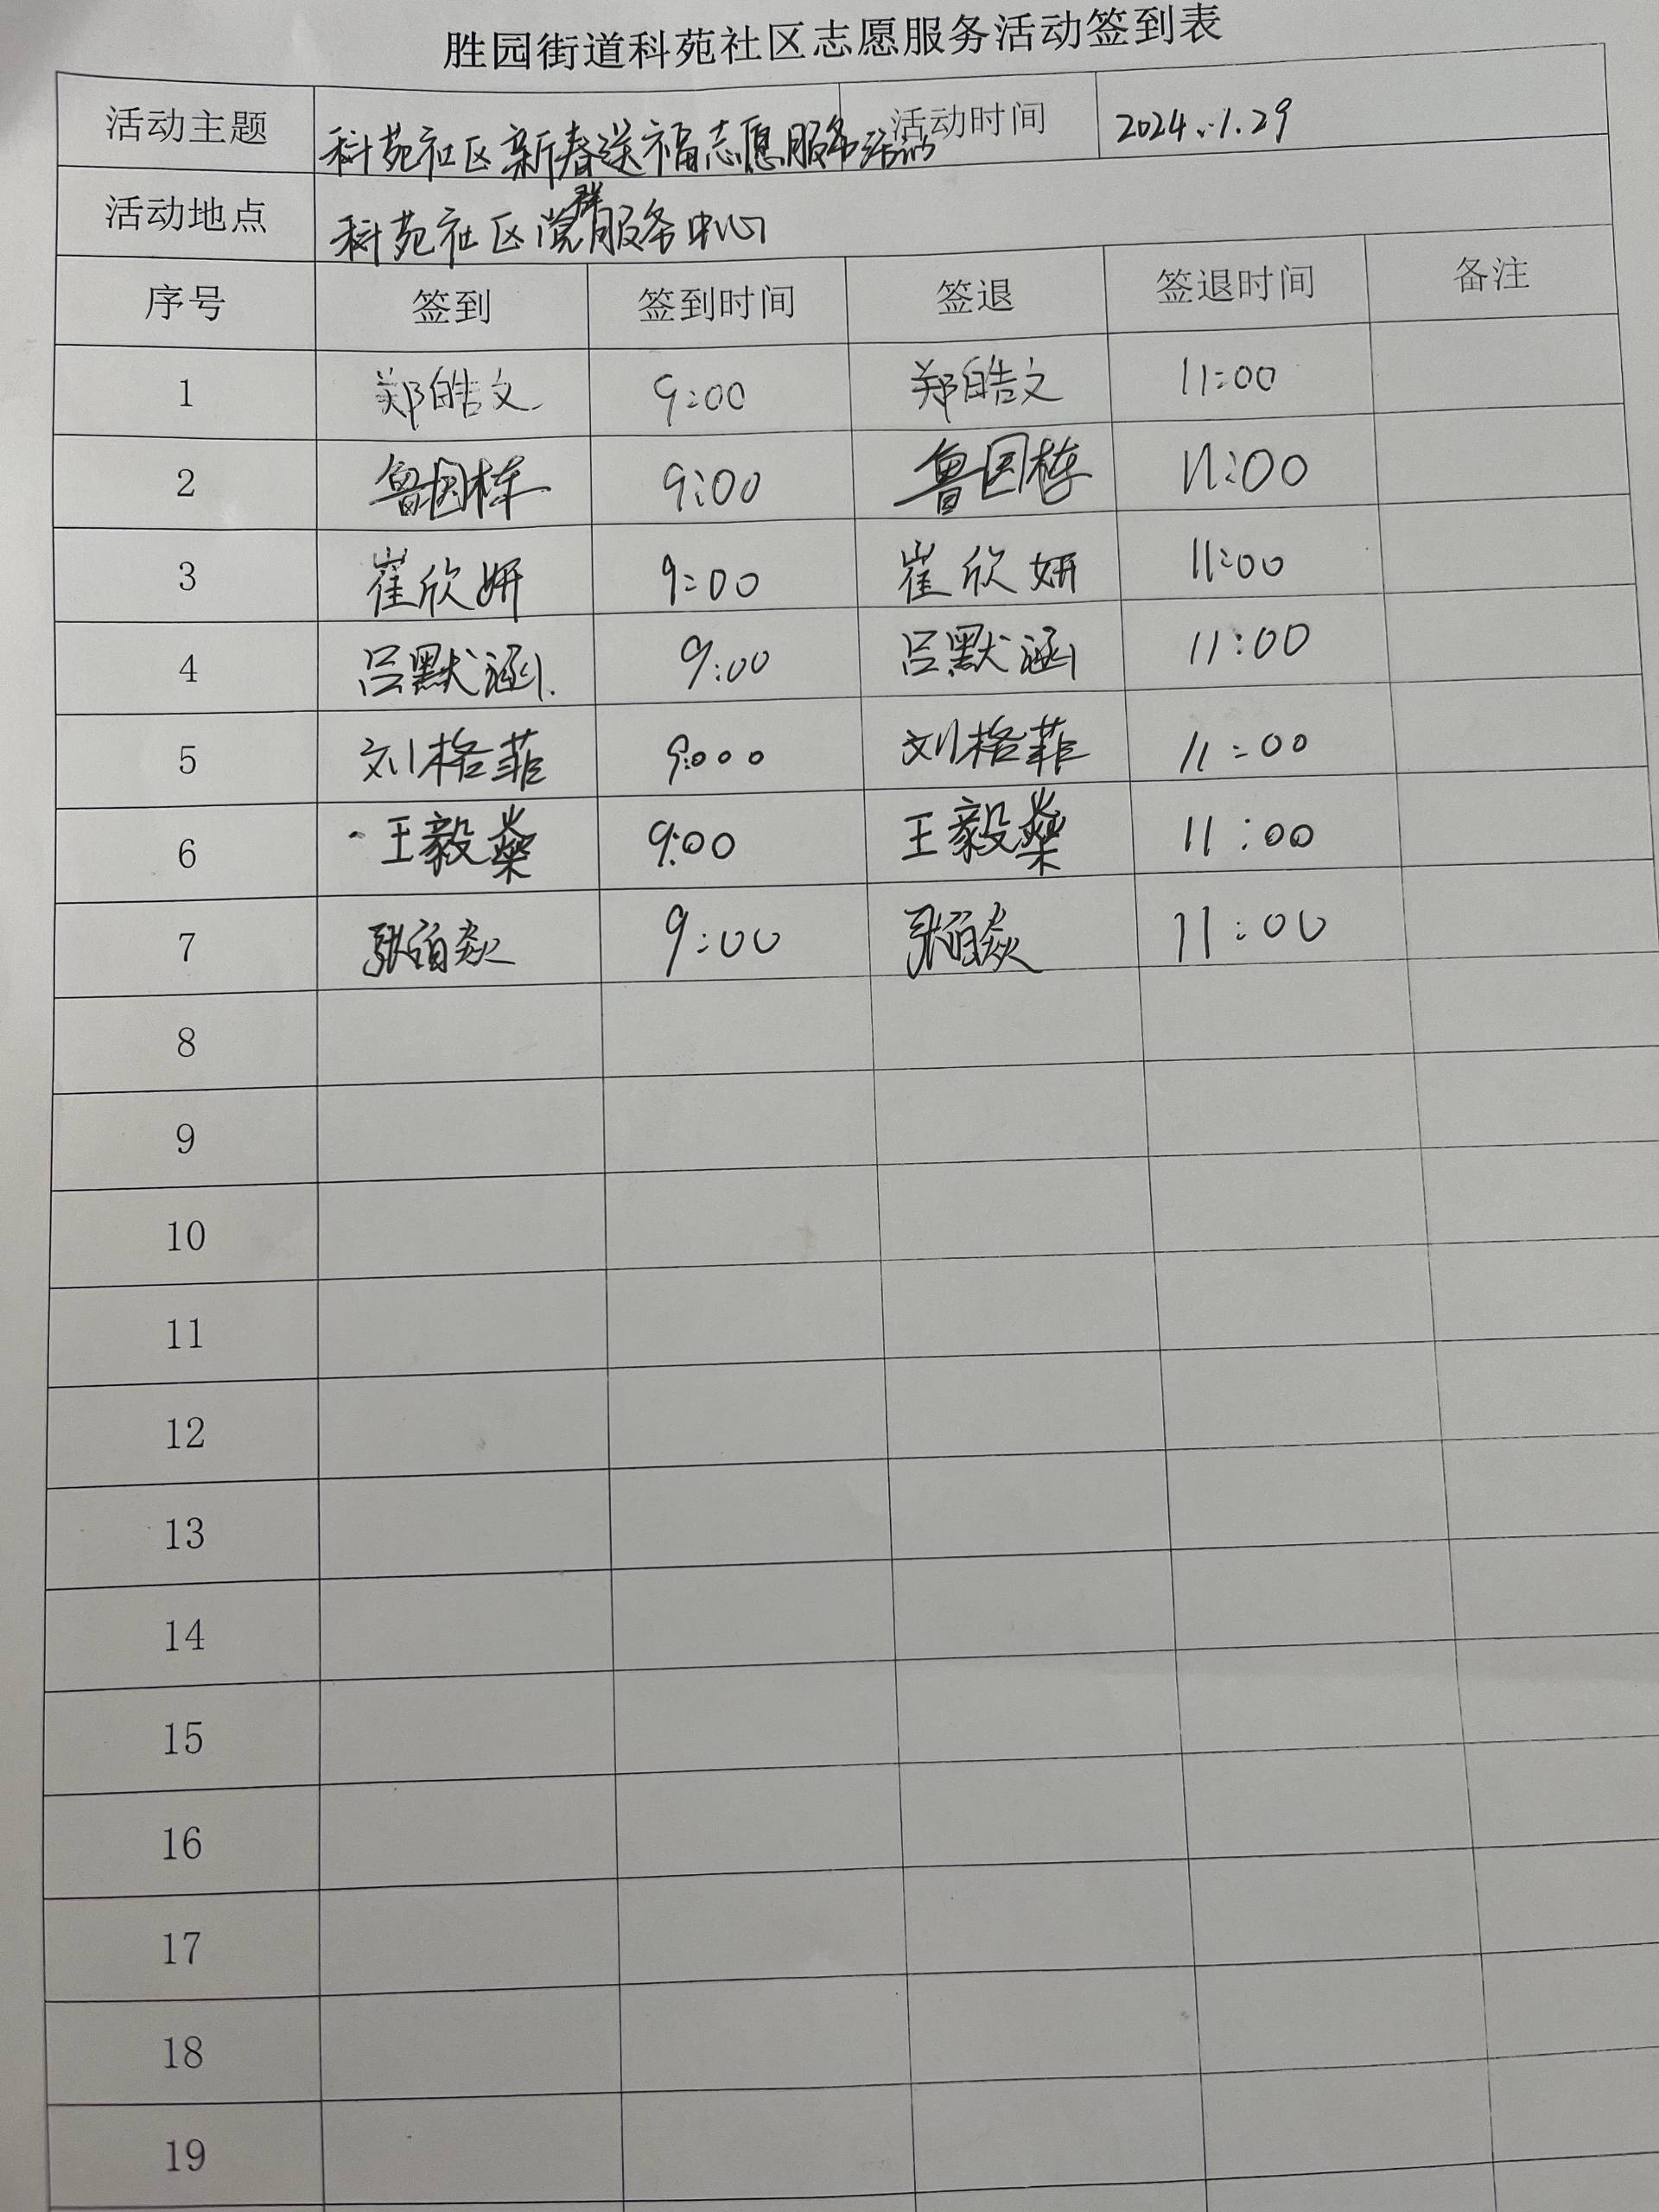 胜园街道科苑社区志愿服务活动签到表
活动主题 科苑社区新春送福志愿服务活动 活动时间 2024.1.29
活动地点 科苑社区党群服务中心
序号 签到 签到时间 签退 签退时间 备注
1 郑皓文 9:00 郑皓文 11:00
2 鲁国栋 9:00 鲁国栋 11:00
3 崔欣妍 9:00 崔欣妍 11:00
4 吕默涵 9:00 吕默涵 11:00
5 刘格菲 9:000 刘格菲 11:00
6 王毅燊 9:00 王毅燊 11:00
7 张 焱 9:00 张 焱 11:00
8
9
10
11
12
13
14
15
16
17
18
19